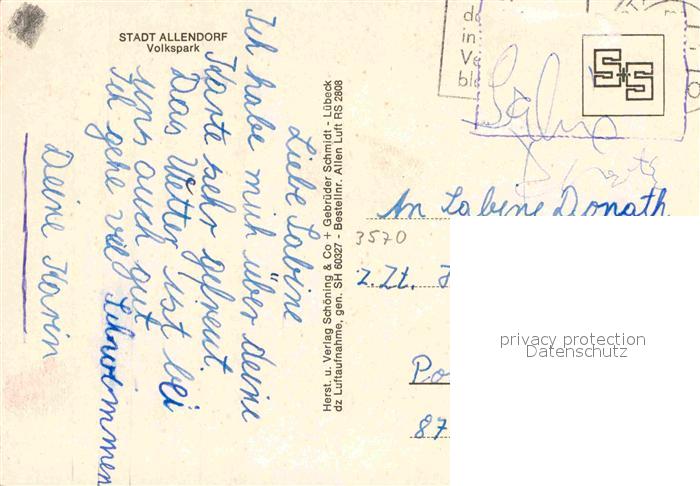 STADT ALLENDORF
Volkspark
Liebe Sabine
Ich habe mich über deine
Karte sehr gefreut.
Das Wetter ist bei
uns auch gut
Ich gehe viel Schwimmen
Deine Karin
Herst. u. Verlag Schöning & Co + Gebrüder Schmidt - Lübeck
dz Luftaufnahme, gen. SH 60327 - Bestellnr. Allen Luft RS 2808
S+S
An Sabine Donath
3570
z. Zt.
Po
87
privacy protection
Datenschutz